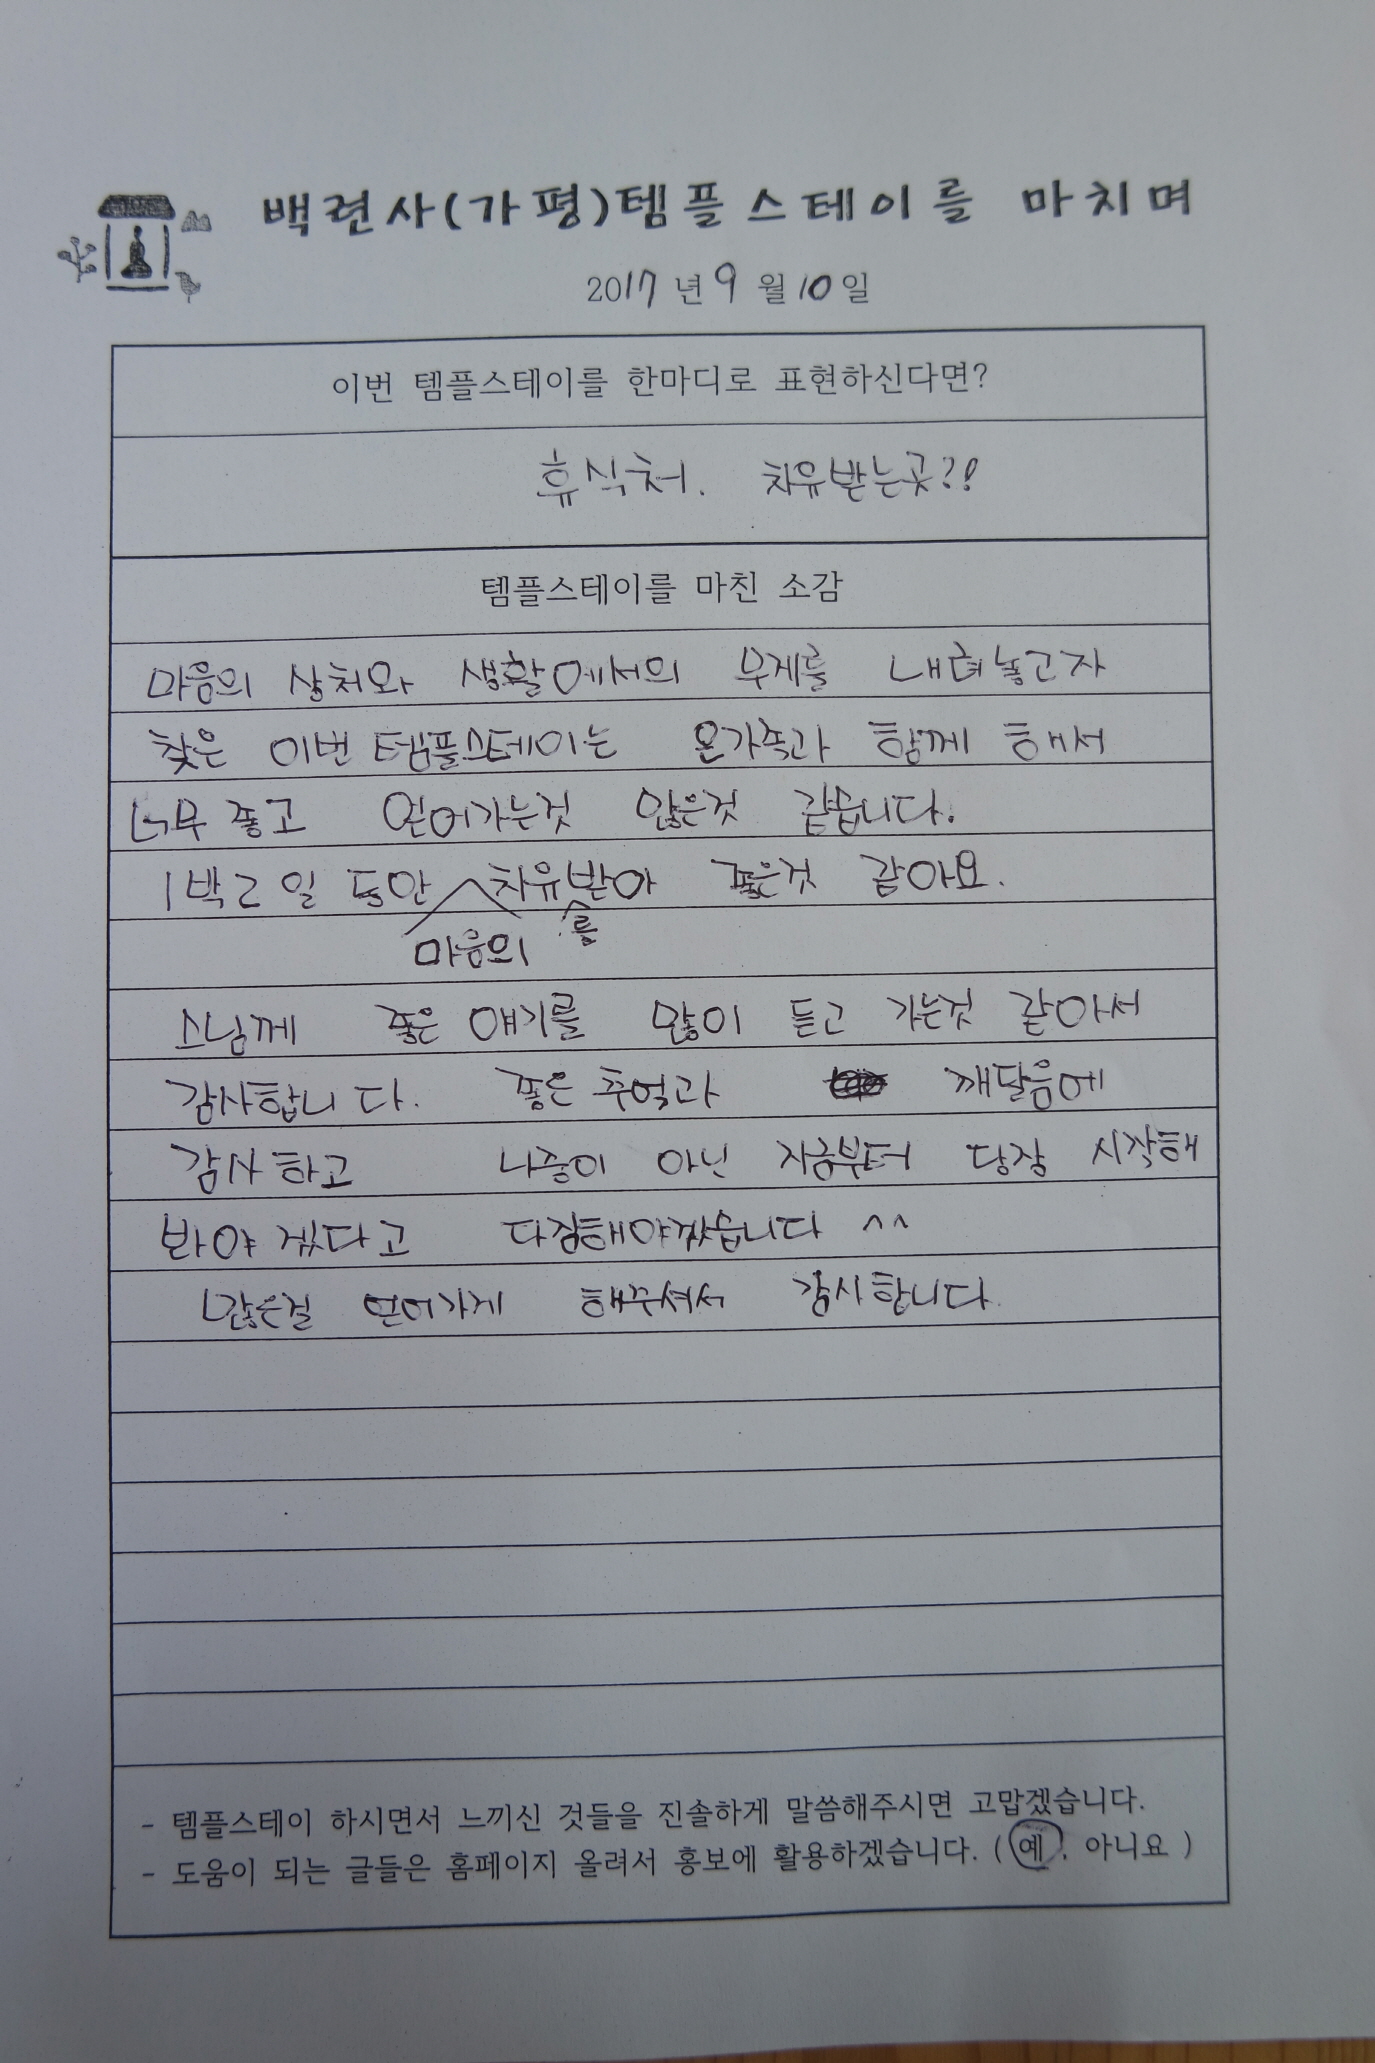 백련사(가평)템플스테이를 마치며
2017년 9월 10일
이번 템플스테이를 한마디로 표현하신다면?
휴식처. 치유받는곳?!
템플스테이를 마친 소감
마음의 상처와 생활에서의 무게를 내려놓고자
찾은 이번 템플스테이는 온가족과 함께 해서
너무 좋고 얻어가는것 많은것 같습니다.
1박2일 동안 치유받아 좋은것 같아요.
마음의 를
스님께 좋은 얘기를 많이 듣고 가는것 같아서
감사합니다. 좋은 추억과 깨달음에
감사하고 나중이 아닌 지금부터 당장 시작해
봐야겠다고 다짐해야겠습니다 ^^
많은걸 얻어가게 해주셔서 감사합니다.
- 템플스테이 하시면서 느끼신 것들을 진솔하게 말씀해주시면 고맙겠습니다.
- 도움이 되는 글들은 홈페이지 올려서 홍보에 활용하겠습니다. ( 예, 아니요 )